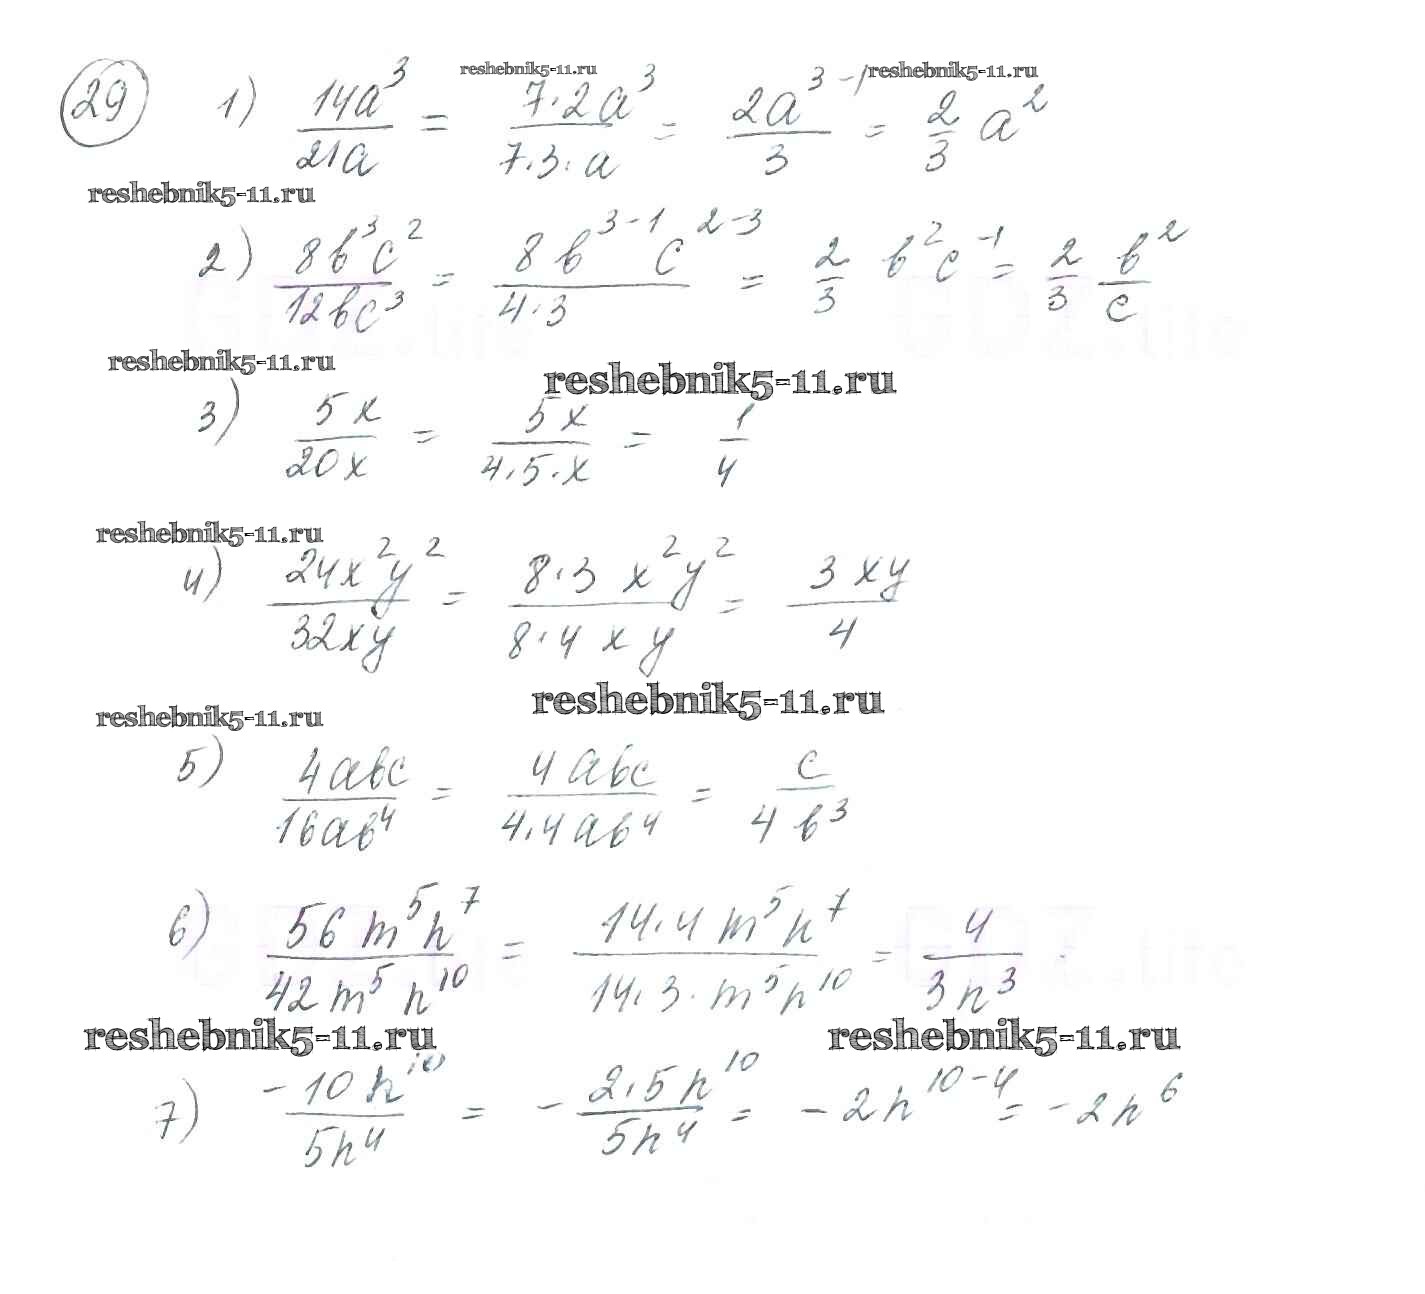 29 1) 14a³/21a = 7·2a³/7·3·a = 2a³⁻¹/3 = 2/3 a²
reshebnik5-11.ru reshebnik5-11.ru
reshebnik5-11.ru
2) 8в³c²/12вc³ = 8в³⁻¹c²⁻³/4·3 = 2/3 в²c⁻¹ = 2/3 в²/c
GDZ.life GDZ.life
reshebnik5-11.ru reshebnik5-11.ru
3) 5x/20x = 5x/4·5·x = 1/4
reshebnik5-11.ru
4) 24x²y²/32xy = 8·3x²y²/8·4xy = 3xy/4
reshebnik5-11.ru reshebnik5-11.ru
5) 4aвc/16aв⁴ = 4aвc/4·4aв⁴ = c/4в³
6) 56m⁵n⁷/42m⁵n¹⁰ = 14·4m⁵n⁷/14·3·m⁵n¹⁰ = 4/3n³
GDZ.life GDZ.life
reshebnik5-11.ru reshebnik5-11.ru
7) -10n¹⁰/5n⁴ = -2·5n¹⁰/5n⁴ = -2n¹⁰⁻⁴ = -2n⁶